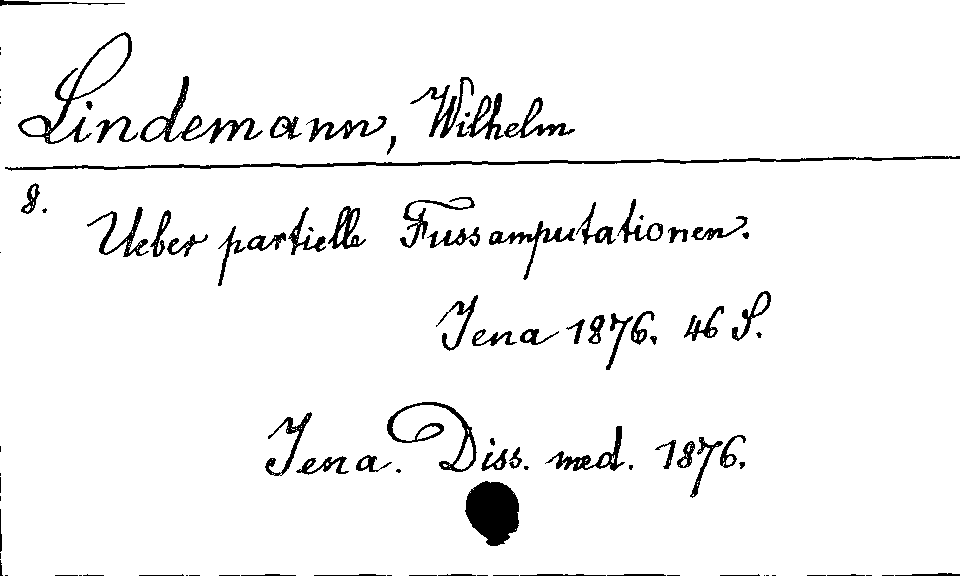 Lindemann, Wilhelm
8.
Ueber partielle Fussamputationen.
Jena 1876. 46 S.
Jena. Diss. med. 1876.